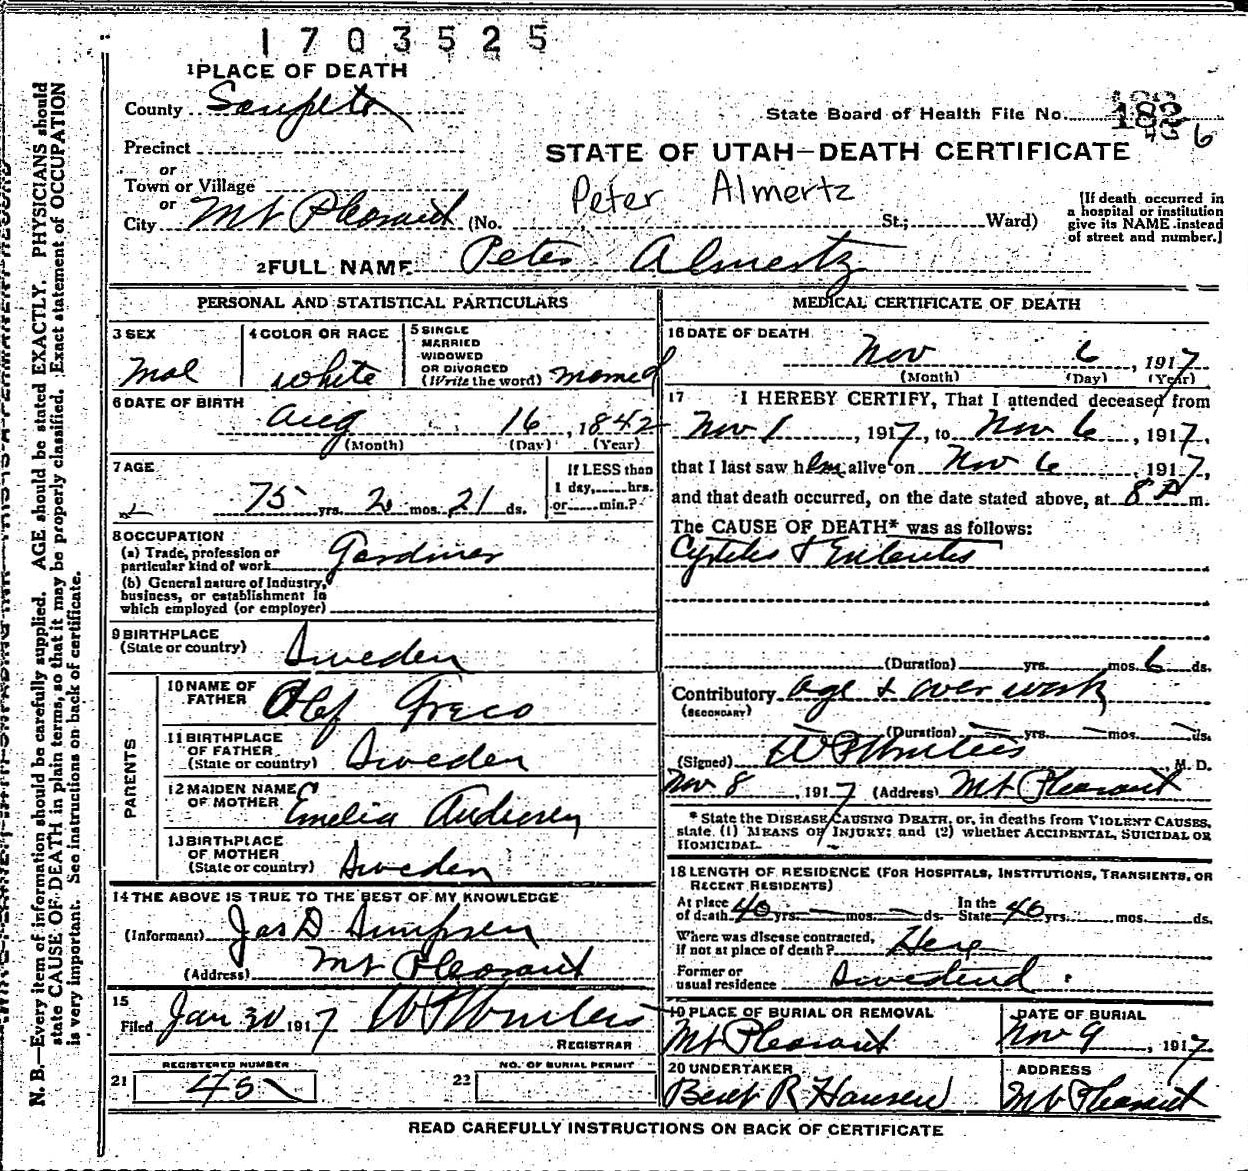 1703525
1 PLACE OF DEATH
County Sanpete
State Board of Health File No. 182 6
Precinct
or
Town or Village
or
City Mt Pleasant (No. St.; Ward)
STATE OF UTAH—DEATH CERTIFICATE
Peter Almertz
[If death occurred in
a hospital or institution
give its NAME instead
of street and number.]
2 FULL NAME Peter Almertz
PERSONAL AND STATISTICAL PARTICULARS
3 SEX
Mal
4 COLOR OR RACE
White
5 SINGLE
MARRIED
WIDOWED
OR DIVORCED
(Write the word) married
6 DATE OF BIRTH
Aug 16, 1842
(Month) (Day) (Year)
7 AGE
75 yrs. 2 mos. 21 ds.
If LESS than
1 day, hrs.
or min.?
8 OCCUPATION
(a) Trade, profession or
particular kind of work Gardiner
(b) General nature of Industry,
business, or establishment in
which employed (or employer)
9 BIRTHPLACE
(State or country) Sweden
PARENTS
10 NAME OF
FATHER Olef Greco
11 BIRTHPLACE
OF FATHER
(State or country) Sweden
12 MAIDEN NAME
OF MOTHER Emelia
13 BIRTHPLACE
OF MOTHER
(State or country) Sweden
14 THE ABOVE IS TRUE TO THE BEST OF MY KNOWLEDGE
(Informant) Jas D Simpsen
(Address) Mt Pleasant
15
Filed Jan 30 1917
REGISTRAR
REGISTERED NUMBER
21 45
NO. OF BURIAL PERMIT
22
MEDICAL CERTIFICATE OF DEATH
16 DATE OF DEATH
Nov 6, 1917
(Month) (Day) (Year)
17 I HEREBY CERTIFY, That I attended deceased from
Nov 1, 1917, to Nov 6, 1917,
that I last saw him alive on Nov 6, 1917,
and that death occurred, on the date stated above, at 8 P m.
The CAUSE OF DEATH* was as follows:
(Duration) yrs. mos. 6 ds.
Contributory age & over work
(SECONDARY)
(Duration) yrs. mos. ds.
(Signed) M. D.
Nov 8, 1917 (Address) Mt Pleasant
* State the DISEASE CAUSING DEATH, or, in deaths from VIOLENT CAUSES,
state (1) MEANS OF INJURY; and (2) whether ACCIDENTAL, SUICIDAL OR
HOMICIDAL.
18 LENGTH OF RESIDENCE (FOR HOSPITALS, INSTITUTIONS, TRANSIENTS, OR
RECENT RESIDENTS)
At place
of death 40 yrs. mos. ds.
In the
State 40 yrs. mos. ds.
Where was disease contracted,
if not at place of death? Here
Former or
usual residence
19 PLACE OF BURIAL OR REMOVAL
Mt Pleasant
DATE OF BURIAL
Nov 9, 1917
20 UNDERTAKER
Bent R Hansen
ADDRESS
Mt Pleasant
READ CAREFULLY INSTRUCTIONS ON BACK OF CERTIFICATE
N. B.—Every item of information should be carefully supplied. AGE should be stated EXACTLY. PHYSICIANS should
state CAUSE OF DEATH in plain terms, so that it may be properly classified. Exact statement of OCCUPATION
is very important. See instructions on back of certificate.